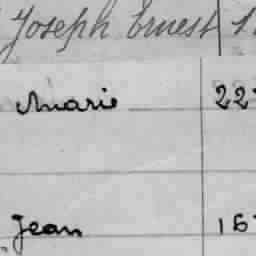 Joseph Ernest 1
Marie 22
Jean 16